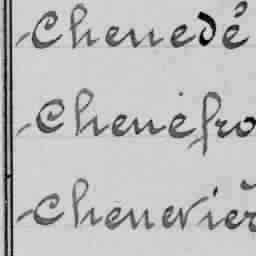 Chenedé
Chenefro
Chenevier